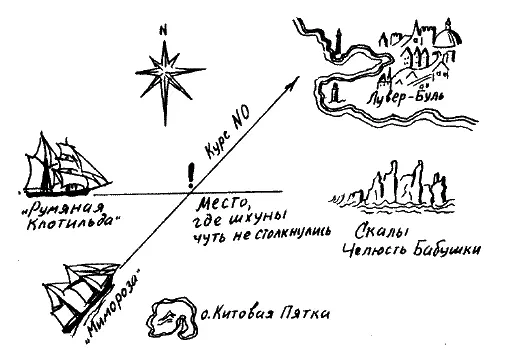 N
Лувер-Буль
Курс NO
!
„Румяная
Клотильда“
Место,
где шхуны
чуть не столкнулись
Скалы
Челюсть Бабушки
„Мимороза“
о.Китовая Пятка